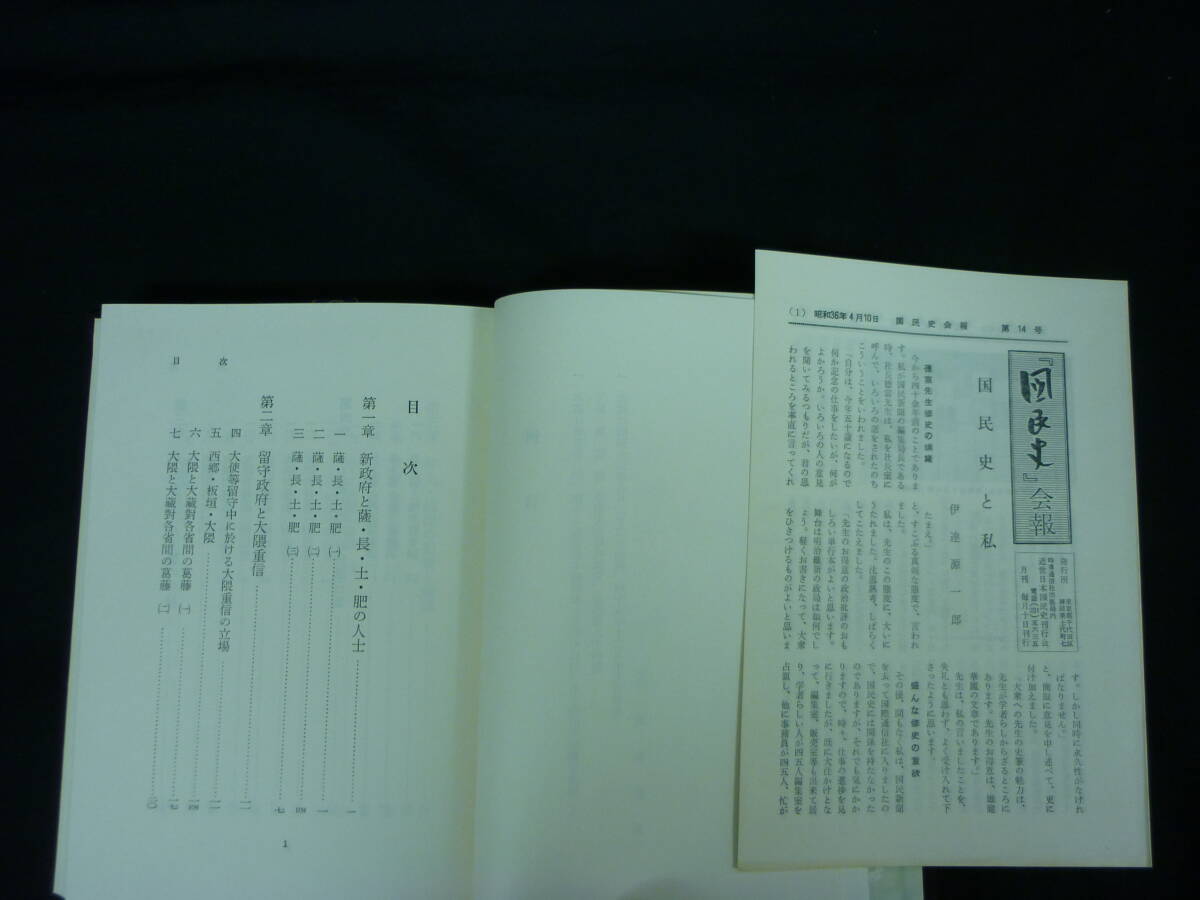 (1) 昭和36年4月10日 国民史会報 第14号
『国民史』会報
発行所
近世日本国民史刊行会
月刊 毎月十日刊行
国民史と私
伊達源一郎
蘇峰先生修史の頃
今から四十余年前のことでありま
す。私が国民新聞の編集局長である
時、社長徳富先生は、私を社長室に
呼んで、いろいろの話をされたのち
こういうことをいわれました。
「自分は、今年五十歳になるので
何か記念の仕事をしたいが、何が
よかろうか。いろいろの人の意見
を聞いてみるつもりだが、君の思
われるところを率直に言ってくれ
たまえ。」
と、すこぶる真剣な態度で、言われ
ました。
私は、先生のこの態度に、大いに
うたれました。沈思熟考、しばらく
してこたえました。
「先生のお得意の政治批評のおも
しろい単行本がよいと思います。
舞台は明治維新の政局は如何でし
ょう。軽くお書きになって、大衆
をひきつけるものがよいと思いま
す。しかし同時に永久性がなけれ
ばなりません。」
と、簡単に意見を申し述べて、更に
付け加えました。
「大衆への先生の史筆の魅力は、
先生が学者らしからざるところに
あります。先生のお得意は、雄健
華麗の文章であります。」
先生は、私の言いましたことを、
失礼とも思わず、よく受け入れて下
さったように思います。
盛んな修史の意欲
その後、間もなく私は、国民新聞
を去って国際通信社に入りましたの
で、国民史には関係を持たなかった
のでありますが、それでも気にかか
りますので、時々、仕事の進捗を見
に行きましたが、既に大仕かけとな
って、編集室、販売室等も出来て居
り、学者らしい人が四五人編集室を
占領し、他に事務員が四五人、忙が
目次
第一章 新政府と薩・長・土・肥の人士……一
一 薩・長・土・肥 (一)……一
二 薩・長・土・肥 (二)……四
三 薩・長・土・肥 (三)……七
第二章 留守政府と大隈重信……
四 大使等留守中に於ける大隈重信の立場……一一
五 西郷・板垣・大隈……一一
六 大隈と大蔵對各省間の葛藤 (一)……一四
七 大隈と大蔵對各省間の葛藤 (二)……一七
目次
1